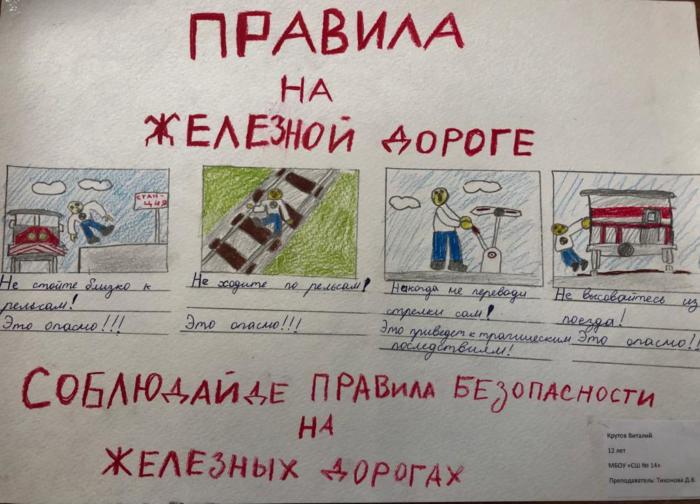 ПРАВИЛА
НА
ЖЕЛЕЗНОЙ ДОРОГЕ
СТАН-
ЦИЯ
Не стойте близко к
рельсам!
Это опасно!!!
Не ходите по рельсам!
Это опасно!!!
Никогда не переводи
стрелки сам!
Это приведет к трагическим
последствиям!
Не высовайтесь из
поезда!
Это опасно!!!
СОБЛЮДАЙДЕ ПРАВИЛА БЕЗОПАСНОСТИ
НА
ЖЕЛЕЗНЫХ ДОРОГАХ
Крутов Виталий
12 лет
МБОУ «СШ № 14»
Преподаватель: Тихонова Д.В.